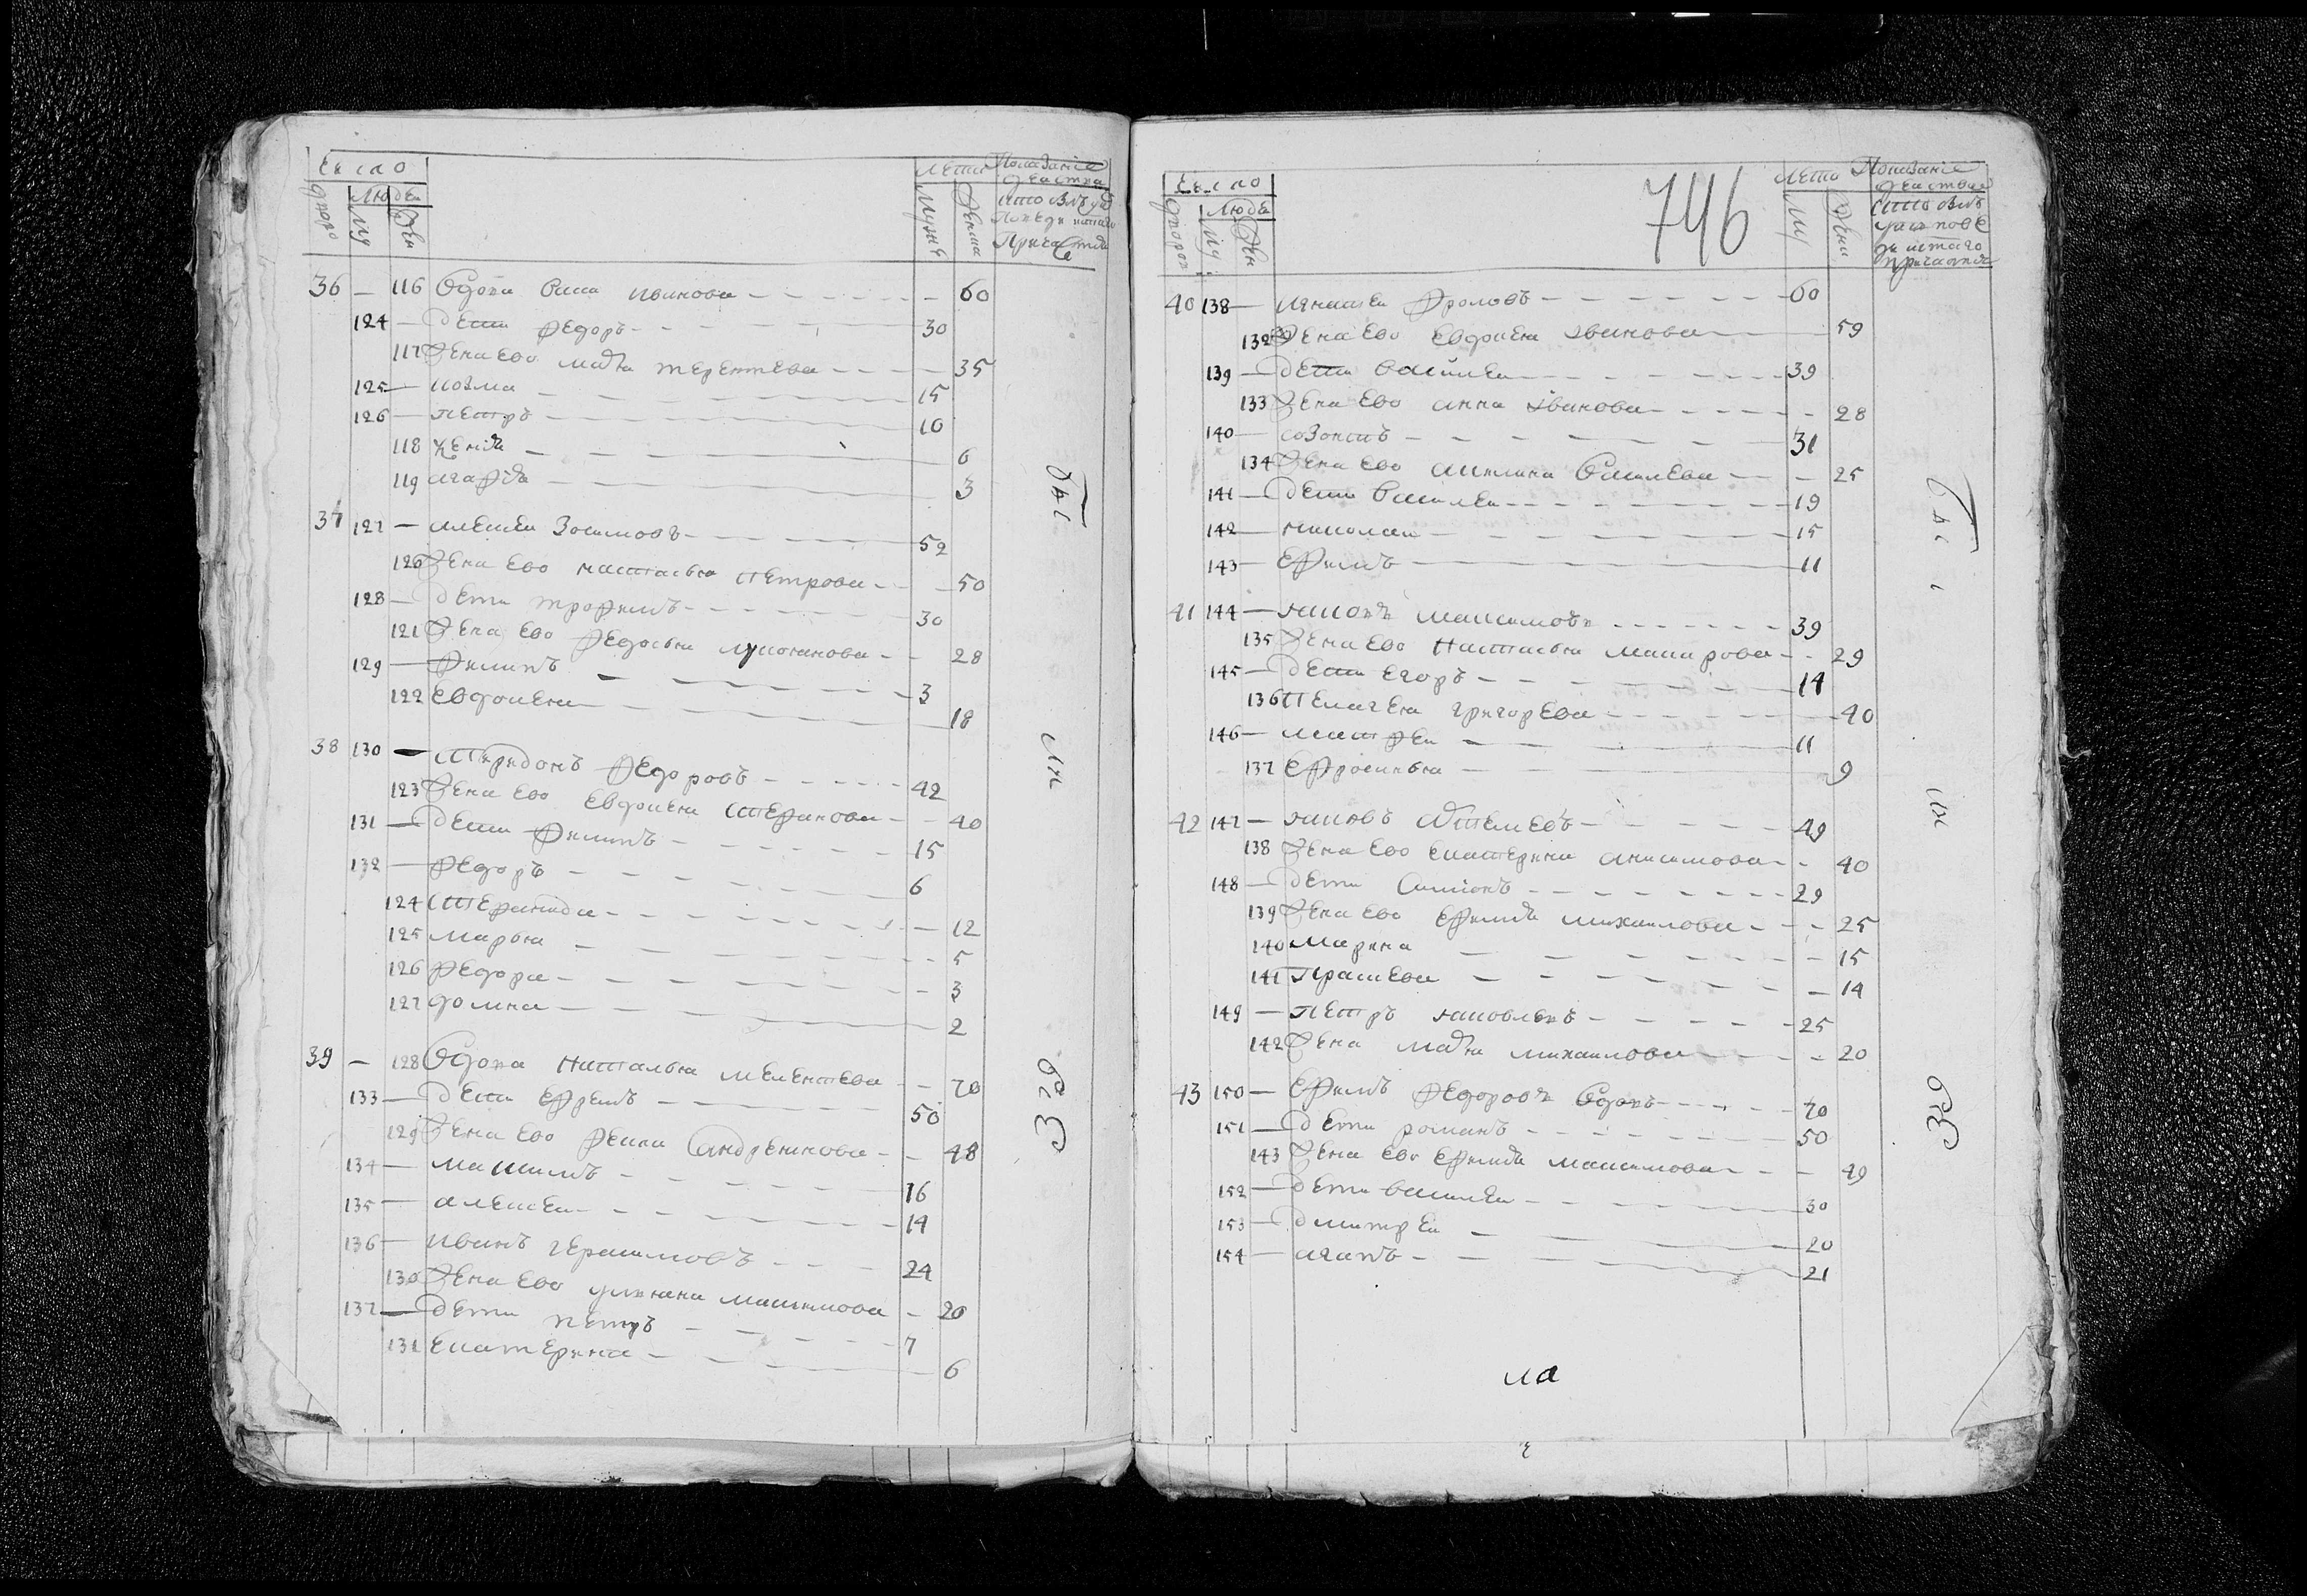 Число
Люде
Лета
Показание
36 — 116 Вдова Васса иванова — 60
124 — дети федоръ — 30
117 Жена ево маѳья терентева — 35
125 — козма — 15
126 — петръ — 10
118 ксенія — 6
119 агафія — 3
37 127 — алексеи Зосимовъ — 52
120 Жена ево настасья петрова — 50
128 — дети трофимъ — 30
121 Жена ево федосья лукоянова — 28
129 — филипъ — 3
122 евдокия — 18
38 130 — Спиридонъ федоровъ — 42
123 Жена ево евдокия Стефанова — 40
131 — дети филипъ — 15
132 — федоръ — 6
124 Стефанида — 12
125 марья — 5
126 федора — 3
127 домна — 2
39 — 128 Вдова наталья мелентева — 70
133 — дети ефремъ — 50
129 Жена ево фекла андреянова — 48
134 — максимъ — 16
135 — алексеи — 14
136 — иванъ герасимовъ — 24
130 Жена ево улияна максимова — 20
137 — дети петръ — 7
131 екатерина — 6
бы
ли
Зде
Число
Люде
746
Лета
Показание
40 138 — игнатеи фроловъ — 60
132 Жена ево евдокия иванова — 59
139 — дети василеи — 39
133 Жена ево анна иванова — 28
140 — созонтъ — 31
134 Жена ево акилина василева — 25
141 — дети василеи — 19
142 — николаи — 15
143 — ефимъ — 11
41 144 — яковъ максимовъ — 39
135 Жена ево настасья макарова — 29
145 — дети егоръ — 14
136 пелагея григорева — 40
146 — матфеи — 11
137 ефросинья — 9
42 147 — яковъ — 49
138 Жена ево екатерина анисимова — 40
148 — дети Симионъ — 29
139 Жена ево ефимия михаилова — 25
140 марина — 15
141 прасковя — 14
149 — петръ яковлевъ — 25
142 Жена михаилова — 20
43 150 — ефимъ федоровъ вдовъ — 70
151 — дети романъ — 50
143 Жена ево ефимия максимова — 49
152 — дети василеи — 30
153 — дмитреи — 20
154 — агапъ — 21
быи
ли
Зде
ка